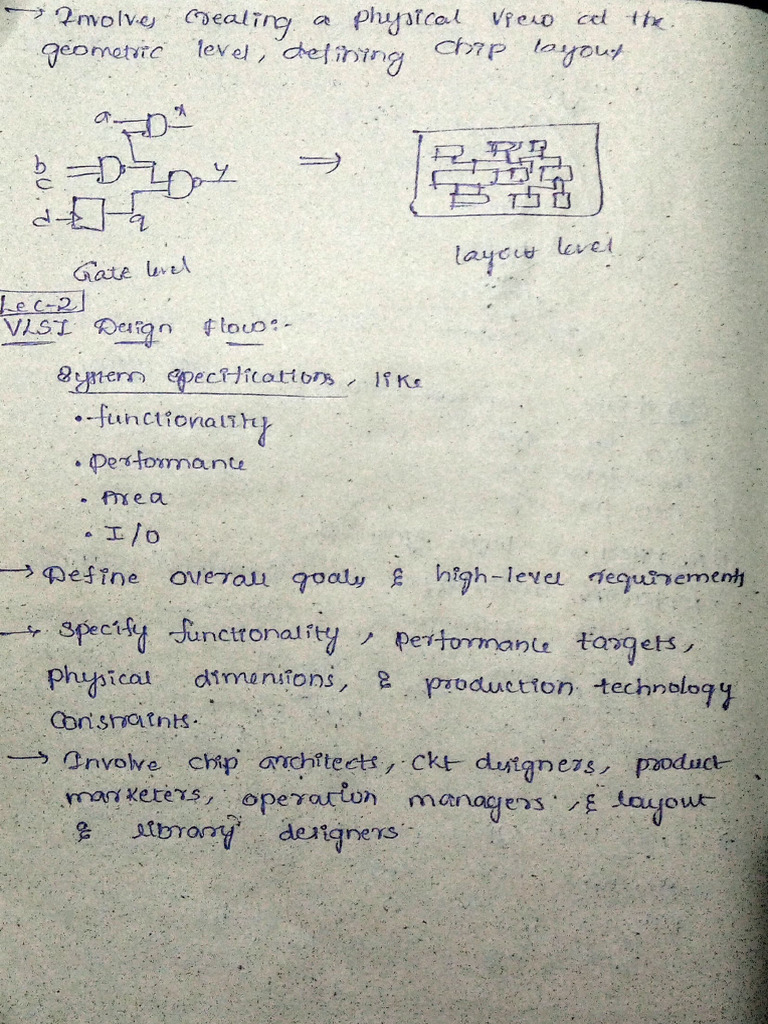 → Involves creating a physical view at the
geometric level, defining chip layout
a x
b
c y
d q
⇒
Gate level
layout level
Lec-2
VLSI Design flow:-
System specifications, like
• functionality
• performance
• Area
• I/O
→ Define overall goals & high-level requirements
→ specify functionality, performance targets,
physical dimensions, & production technology
constraints.
→ Involve chip architects, ckt designers, product
marketers, operation managers, & layout
& library designers.